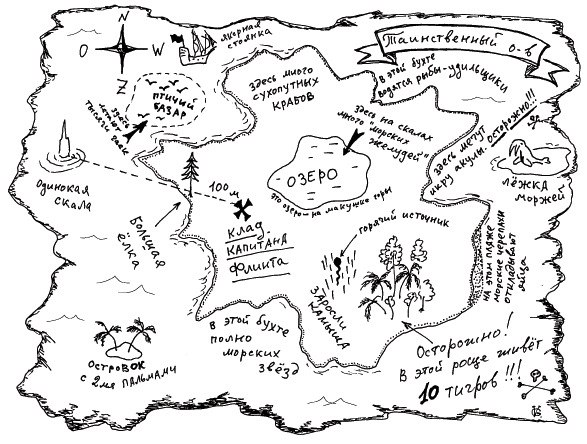 N
O
W
Z
якорная
стоянка
Таинственный о-в
В этой бухте
водятся рыбы-удильщики
здесь много
сухопутных
крабов
птичий
базар
здесь
тысячи
здесь на скалах
много "морских
желудей"
здесь мечут
икру акулы. Осторожно!!!
лёжка
моржей
Одинокая
скала
100 м
Озеро
это озеро - на макушке горы
Большая
ёлка
клад
капитана
Флинта
горячий источник
Заросли
камыша
на этом пляже
морские черепахи
откладывают
яйца
в этой бухте
полно
морских
звёзд
Островок
с 2мя пальмами
Осторожно!
В этой роще живёт
10 тигров!!!